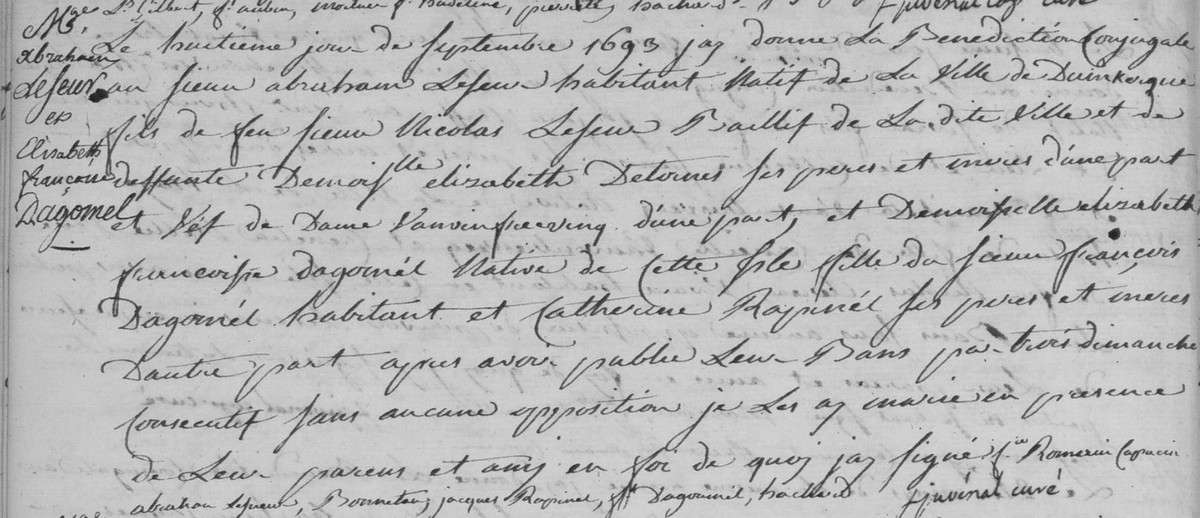 Mge
Abraham
Leseur
et
Elisabeth
françoise
Dagomel
Le huitieme jour de Septembre 1693 jay donne La Benediction Conjugale
au sieur abraham Leseur habitant Natif de La Ville de Duinkerque
fils de feu sieur Nicolas Leseur Baillif de La dite Ville et de
deffunte Demoislle elizabeth Detornes ses peres et meres d'une part
et Vef de Dame d'une part, et Demoiselle elizabeth
francoise Dagomél Native de Cette Isle fille du sieur françois
Dagomél habitant et Catherine Rapinél ses peres et meres
Dautre part apres avoir publie Leur Bans par trois dimanche
Consecutif sans aucune opposition je Les ay marie en presence
de Leur parens et amis en foi de quoy jay signé f. Romerin Capucin
abraham Leseur, jacques Rapinel, Dagommel, hachard f juvénal curé.